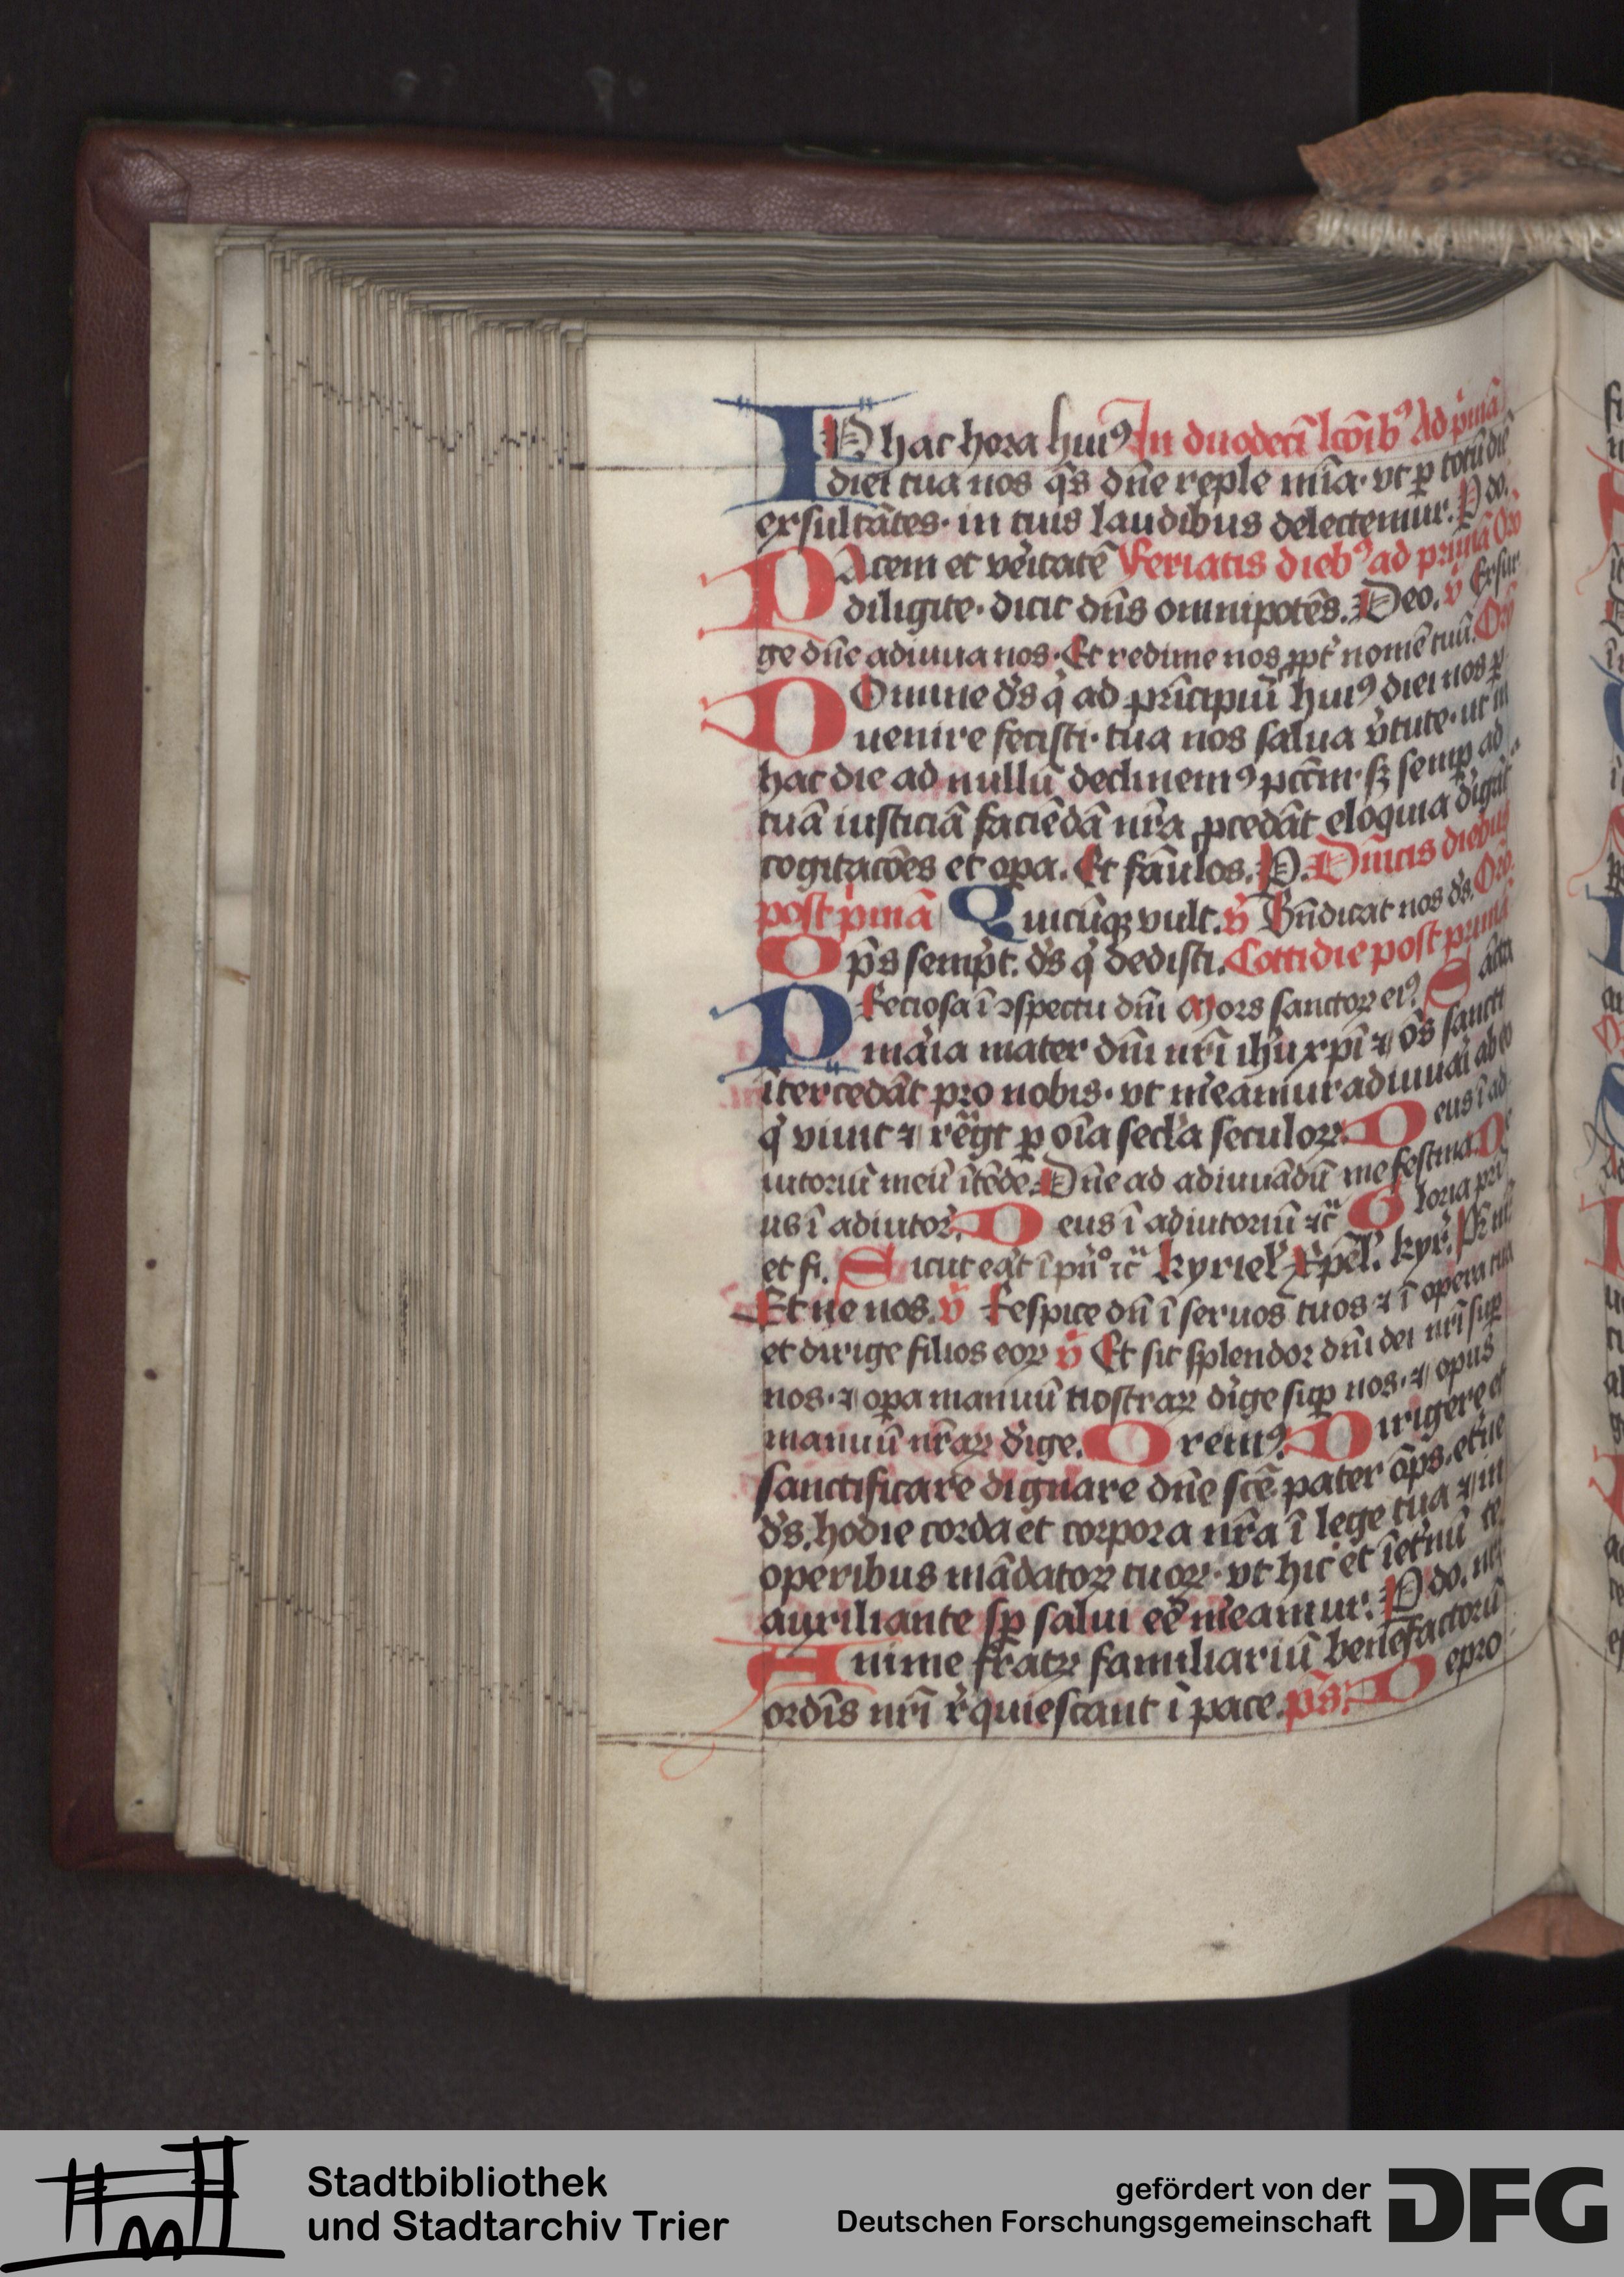 IN hac hora huiꝰ In duodecī lcōibꝰ Ad p̍mā
diei tua nos q̄s dn̄e reple mīa· vt ꝑ totū diē
exsultātes· in tuis laudibus delectemur. P do.
PAcem et veritatē Feriatis diebꝰ ad primā Oro
diligite· dicit dn̄s omnipotēs. Deo. v̄ Exsur
ge dn̄e adiuua nos· Et redime nos ꝓpt̄ nomē tuū. Oro
DOmine ds̄ q̍ ad prīcipiū huiꝰ diei nos ꝑ
uenire fecisti· tua nos salua v̄tute· ut in
hac die ad nullū declinemꝰ pctm̄· sꝫ semꝑ ad
tuā iusticiā faciēdā nr̄a ꝓcedāt eloquia
cogitacōes et oꝑa. Et fāulos. P. Dn̄icis diebus
post p̍mā Quicūqꝫ vult. v̄ Bn̄dicat nos ds̄. Oro.
Op̄s semp̄t. ds̄ q̍ dedisti. Cottidie post primā
PReciosa ī ꝯspectu dn̄i Mors sanctoꝝ eiꝰ Sācta
maria mater dn̄i nr̄i ihū xp̄i ⁊ oēs sancti
ītercedāt pro nobis· vt m̄eamur adiuuari ab eo
q̍ viuit ⁊ reg̍t ꝑ oīa sec̄la seculoꝝ. Deus ī ad
iutoriū meū ītēde. Dn̄e ad adiuuādū me festina. De
us ī adiutor̄. Deus ī adiutoriū ⁊c̄ Gloria pr̄i
et fi. Sicut erat ī pn̊ ⁊c̄ kyriel̄ Xp̄el̄. kyr̄. Pr̄ nr̄
Et ne nos. v̄ Respice dn̄ ī seruos tuos ⁊ ī opera tua
et dirige filios eoꝝ v̄ Et sit splendor dn̄i dei nr̄i suꝑ
nos· ⁊ oꝑa manuū nostraꝝ d̍ige suꝑ nos· ⁊ opus
manuū nr̄aꝝ d̍ige. Oremꝰ. Dirigere et
sanctificare dignare dn̄e scē pater op̄s. et̍ne
ds̄. hodie corda et corpora nr̄a ī lege tua ⁊ in
operibus mādatoꝝ tuoꝝ· vt hic et īet̍nū te
auxiliante sꝑ salui eē m̍eamur. P do. nr̄
Anime fratꝝ familiariū benefactorū
ordīs nr̄i r̍quiescant ī pace. ps̄. Depro
Stadtbibliothek
und Stadtarchiv Trier
gefördert von der
Deutschen Forschungsgemeinschaft
DFG